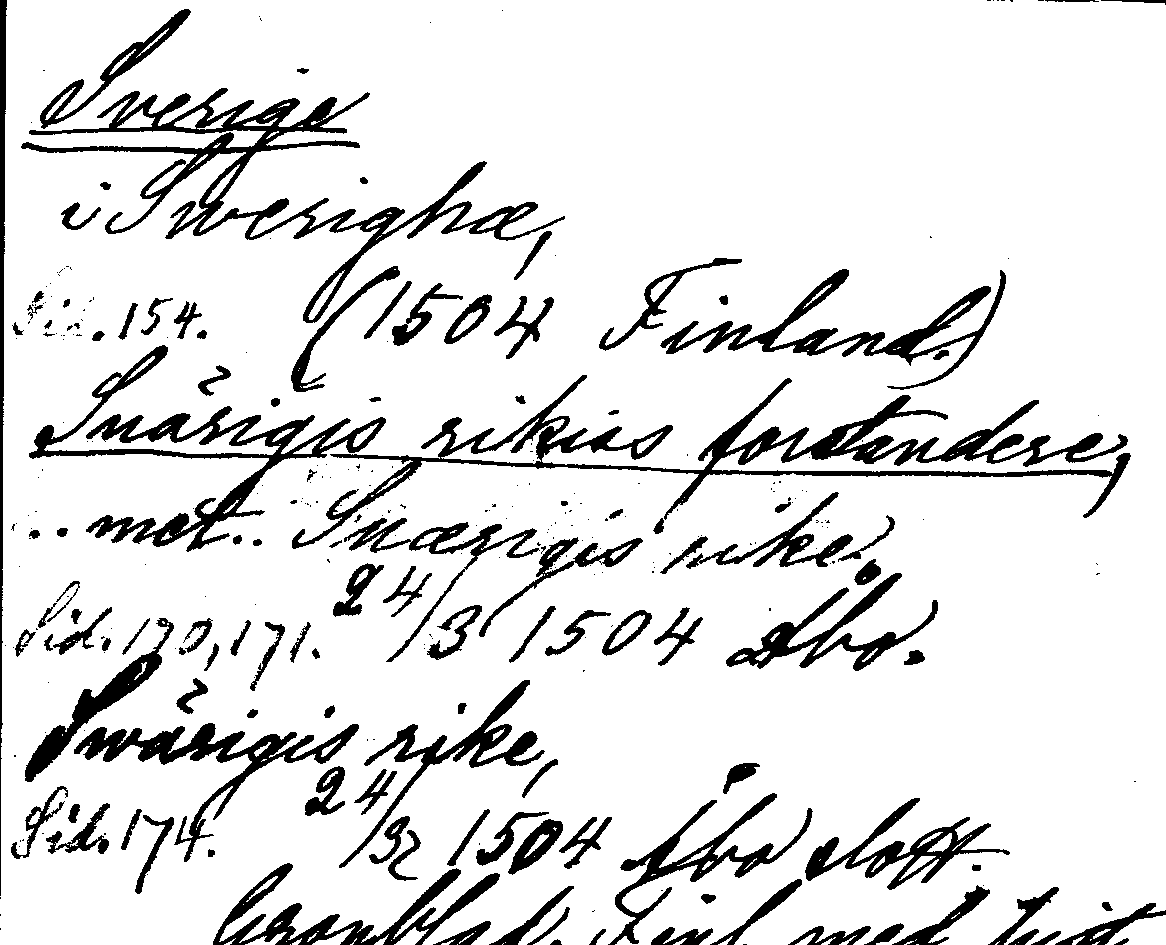 Sverige
i Swerighæ,
Sid. 154. (1504 Finland.)
Suärigis rikias forstandere,
.. met.. Suærigis rike.
Sid. 170, 171. 24/3 1504 Åbo.
Swärigis rike,
Sid. 174. 24/3 1504 Åbo slott.
Grönblad. Finl. med.